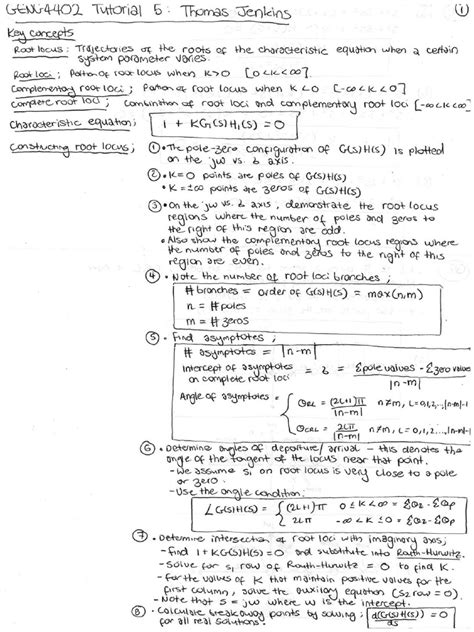 GENG4402 Tutorial 5: Thomas Jenkins
1
Key concepts
Root locus: Trajectories of the roots of the characteristic equation when a certain
system parameter varies.
Root loci; Portion of root locus when K>0 [0<K<∞].
Complementary root loci; Portion of root locus when K<0 [-∞<K<0]
Complete root loci; Combination of root loci and complementary root loci [-∞<K<∞]
Characteristic equation; 1 + KG(s)H(s) = 0
Constructing root locus; ① • The pole-zero configuration of G(s)H(s) is plotted
on the jw vs. б axis.
② • K=0 points are poles of G(s)H(s)
• K = ±∞ points are zeros of G(s)H(s)
③ • On the jw vs. б axis, demonstrate the root locus
regions where the number of poles and zeros to
the right of this region are odd.
• Also show the complementary root locus regions where
the number of poles and zeros to the right of this
region are even.
④ • Note the number of root loci branches;
# branches = order of G(s)H(s) = max(n,m)
n = # poles
m = # zeros
⑤ • Find asymptotes;
# asymptotes = |n-m|
Intercept of asymptotes on complete root loci = б = (Σpole values - Σzero values) / |n-m|
Angle of asymptotes = { θRL = (2L+1)π / |n-m| n≠m, L=0,1,2,..,|n-m|-1
θCRL = 2Lπ / |n-m| n≠m, L=0,1,2,..,|n-m|-1
⑥ • Determine angles of departure/arrival - this denotes the
angle of the tangent of the locus near that point.
- We assume s₁ on root locus is very close to a pole
or zero.
- Use the angle condition;
∠G(s)H(s) = { (2L+1)π 0≤K<∞ = Σθz - Σθp
2Lπ -∞<K≤0 = Σθz - Σθp
⑦ • Determine intersection of root loci with imaginary axis;
- Find 1+KG(s)H(s)=0 and substitute into Routh-Hurwitz.
- Solve for s₁ row of Routh-Hurwitz = 0 to find K.
- For the values of K that maintain positive values for the
first column, solve the auxiliary equation (s₂ row = 0).
- Note that s = jw where w is the intercept.
⑧ • Calculate breakaway points by solving; d(G(s)H(s))/ds = 0
for all real solutions.